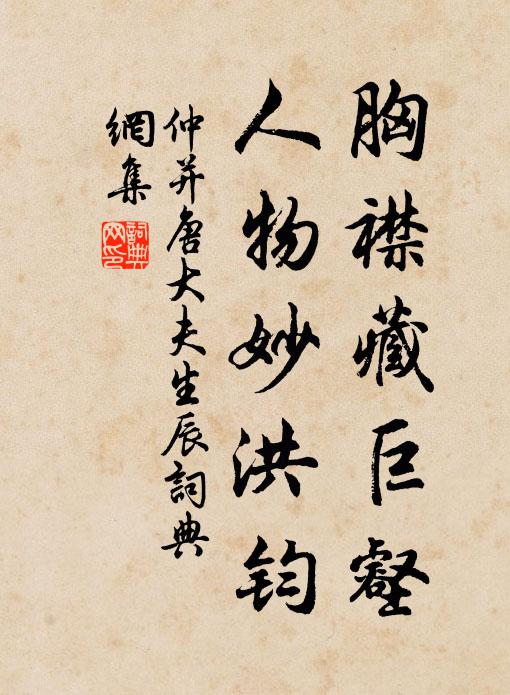 胸襟藏巨壑
人物妙洪钧
仲并唐大夫生辰詞典
網集
詞典
网印